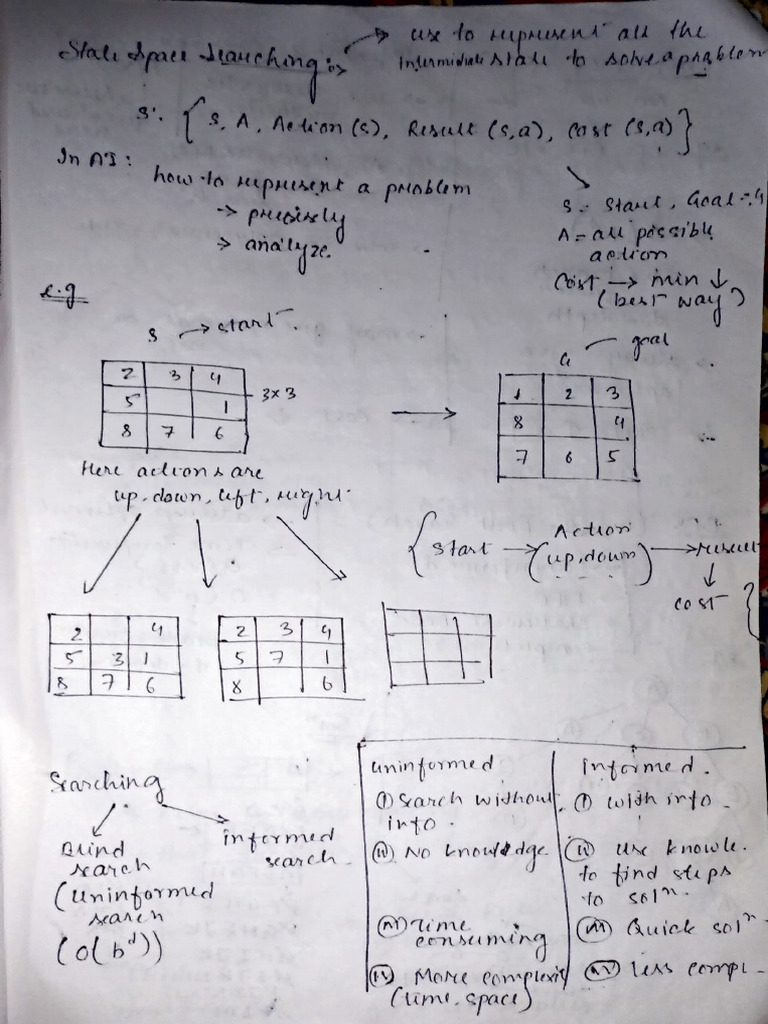 State Space Searching :-> → use to represent all the
intermidiate state to solve a problem
S: { S, A, Action (S), Result (S,a), Cost (S,a) }
In AI:
how to represent a problem
→ precisely
→ analyze.
S = Start, Goal = G
A = all possible
action
Cost → min ↓
(best way)
e.g
S → start
2 3 4
5 1
8 7 6
3x3
→
G goal
1 2 3
8 4
7 6 5
Here actions are
up, down, left, right.
{ Start → Action → result
(up, down) ↓
cost }
2 4
5 3 1
8 7 6
2 3 4
5 7 1
8 6
Searching
Blind
search
(uninformed
search
(O(b^d))
informed
search
uninformed
(i) Search without
info.
(ii) No knowledge
(iii) Time
consuming
(iv) More complexit
(time, space)
informed.
(i) with info.
(ii) use knowle.
to find steps
to solⁿ.
(iii) Quick solⁿ
(iv) less compl-